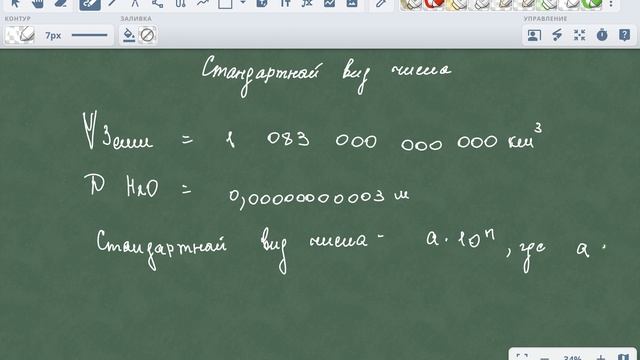 КОНТУР ЗАЛИВКА УПРАВЛЕНИЕ
7px
Стандартный вид числа
VЗемли = 1 083 000 000 000 км³
D H2O = 0,00000000003 м
Стандартный вид числа - a · 10ⁿ, где a
34%